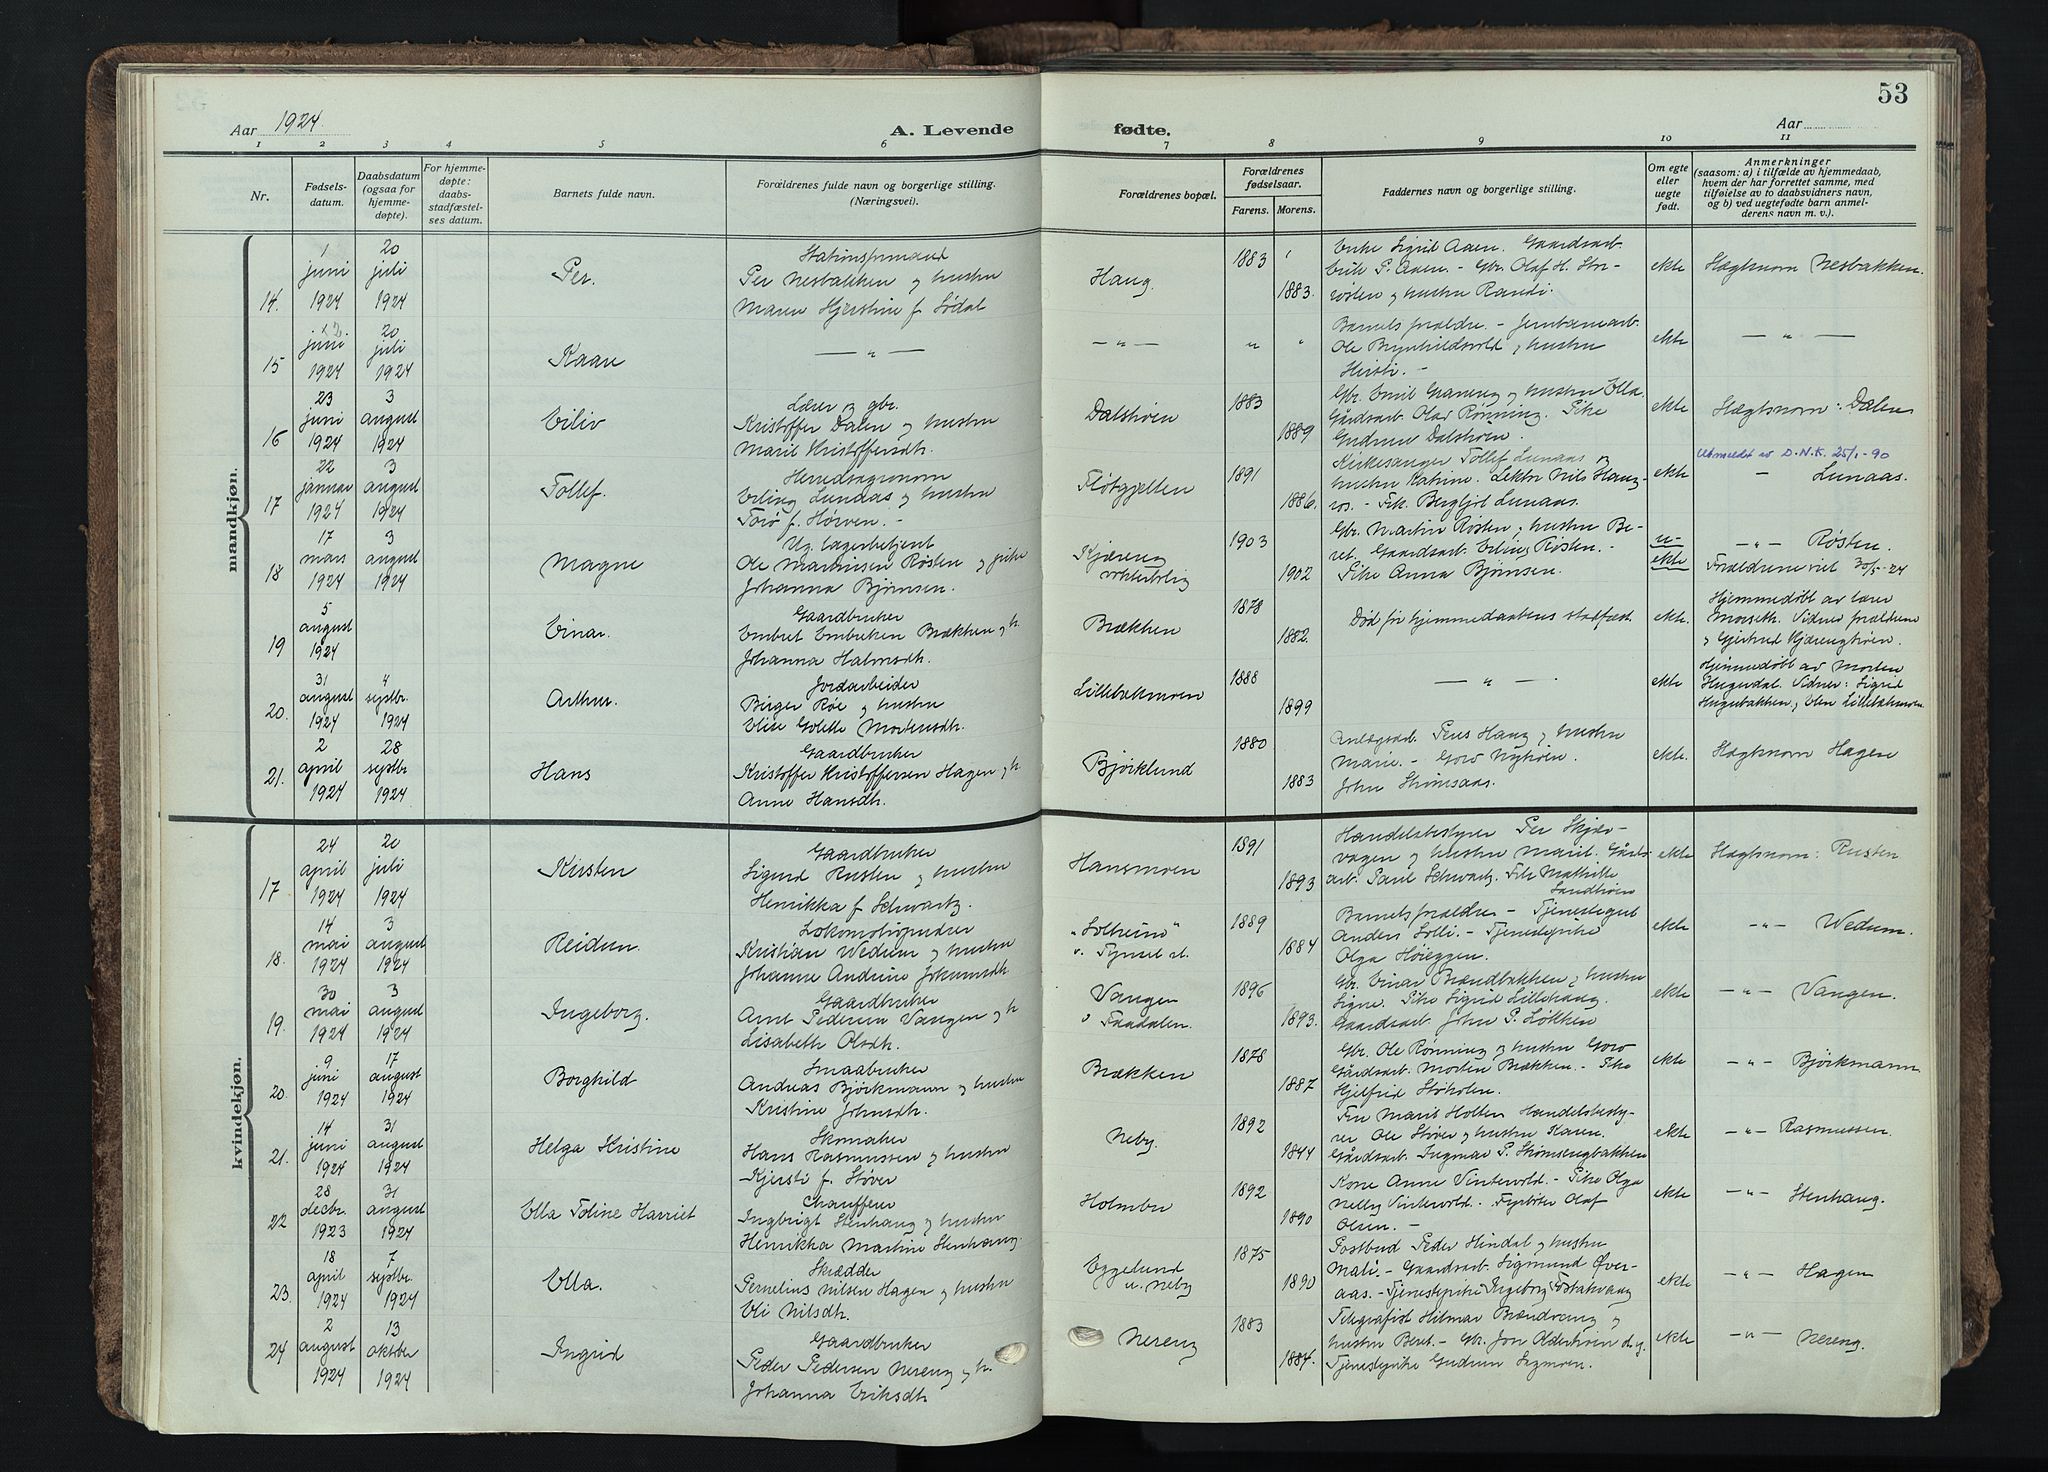 53
Aar 1924.
A. Levende fødte.
Aar
1 2 3 4 5 6 7 8 9 10 11
Nr.
Fødsels-
datum.
Daabsdatum
(ogsaa for
hjemme-
døpte).
For hjemme-
døpte:
daabs-
stadfæstel-
ses datum.
Barnets fulde navn.
Forældrenes fulde navn og borgerlige stilling.
(Næringsvei).
Forældrenes bopæl.
Forældrenes
fødselsaar.
Farens. Morens.
Faddernes navn og borgerlige stilling.
Om egte
eller
uegte
født.
Anmerkninger
(saasom: a) i tilfælde av hjemmedaab,
hvem der har forrettet samme, med
tilføielse av to daabsvidners navn,
og b) ved uegtefødte barn anmel-
derens navn m. v.).
mandkjøn.
14. 1 juni 1924
20 juli 1924
Per.
Per Nesbakken og hustru
Maren Hjerstine f. Lødal
Haug.
1883
1883.
Enke Sigrid Aaen. Gaardsarb.
Erik P. Aaen. - Gbr. Olaf H. Stor-
røsten og hustru Randi.
ekte
Slegtsnavn Nesbakken.
15 juni 1924
20 juli 1924
Kaare
— „ —
— „ —
„ „
Barnets forældre. - Jernbanearb.
Ole Brynhildsvold og hustru
Kirsti. -
ekte
— „ —
16 23 juni 1924
3 august 1924
Eiliv
Lærer og gbr.
Kristoffer Dalen og hustru
Marit Kristoffersdh.
Dalstrøen
1883
1889
Gbr. Emil Graneng og hustru Olla.
Gårdsarb. Olav Rønning. Pike
Gudrun Dalstrøen.
ekte
Slegtsnavn: Dalen
Utmeldt av D.N.K. 25/1-90
17 22 januar 1924
3 august 1924
Tollef.
Herredsagronom
Erling Lunaas og hustru
Toro f. Horven. -
Fløtgjelten
1891
1886.
Kirkesanger Tollef Lunaas og
hustru Katrine. Lektor Nils Haug-
ros. - Frk. Bergljot Lunaas.
ekte
— Lunaas.
18 17 mars 1924
3 august 1924
Magne
Ug. lagerbetjent
Ole Martinsen Røsten og pike
Johanna Bjørnsen.
Kjæreng
1903
1902
Gbr. Martin Røsten og hustru Be-
ret. Gaardsarb. Erling Røsten. -
Pike Anna Bjørnsen.
u-
ekte
— „ — Røsten.
Forældrene viet 30/5-24
19 5 august 1924
Einar.
Gaardbruker
Embret Embretsen Brækken og h.
Johanna Halvorsdh.
Brækken
1878
1882.
Død før hjemmedaabens stadfæst.
ekte.
Hjemmedøbt av lærer
Morseth. Vidner forældrene
og Gjertrud Kjærengtrøen.
20. 31 august 1924
4 septbr. 1924
Arthur.
Jordarbeider
Birger Røe og hustru
Elise Golette Mortensdh.
Lillebækmoen
1888
1899
— „ —
ekte
Hjemmedøbt av Morten
Hugudal. Vidner: Sigrid
21. 2 april 1924
28 septbr 1924
Hans
Gaardbruker
Kristoffer Kristoffersen Hagen og h.
Anne Hansdh.
Bjørklund
1880
1883
Anlægsarb. Jens Haug og hustru
Marie. - Goro Nytrøen.
John Strømsaas.
ekte.
Slegtsnavn Hagen
kvindekjøn.
17 24 april 1924
20 juli 1924
Kirsten
Gaardbruker
Sigurd Rusten og hustru
Henrikka f. Schwartz.
Hansmoen
1891
1893
Handelsbestyrer Per Skjær-
vagen og hustru Marit. Gårds-
arb. Paul Schwartz. Frk. Mathilde
Sandtrøen
ekte
Slegtsnavn: Rusten
18. 14 mai 1924
3 august 1924
Reidun.
Lokomotivpudser
Kristian Wedum og hustru
Johanne Andrine Johannesdh.
„Solheim"
v. Tynset st.
1889
1884
Barnets forældre - Tjenestegut
Anders Lolli. - Tjenestepike
Olga Høieggen.
ekte
— „ — Wedum.
19. 30 mai 1924
3 august 1924
Ingeborg.
Gaardbruker
Arnt Pedersen Vangen og h
Lisabeth Olsdh.
Vangen
v Faadalen.
1896
1893.
Gbr. Einar Brændbakken og hustru
Signe. Pike Sigrid Lillehaug.
Gaardsarb. John P. Løkken
ekte
— „ — Vangen.
20. 9 juni 1924
17 august 1924
Borghild
Smaabruker
Andreas Bjørkmann og hustru
Kristine Johnsdh.
Brækken
1878
1887
Gbr. Ole Rønning og hustru Goro
Gårdsarb. Morten Brækken. - Pike
Hjelfrid Støholen.
ekte
— „ — Bjørkmann
21. 14 juni 1924
31 august 1924
Helga Kristine
Skomaker
Hans Rasmussen og hustru
Kjersti f. Støver
Neby.
1892
1844
Fru Marit Holten Handelsbesty-
rer Ole Støver og hustru Karen.
Gårdsarb. Ingmar P. Strømsengbakken
ekte
— „ — Rasmussen.
22 28 decbr. 1923
31 august 1924
Ella Toline Harriet
Chauffeur
Ingbrigt Stenhaug og hustru
Henrikka Martine Stenhaug.
Holmbu
1892
1890
Kone Anne Vintervold. - Pike Olga
Nelly Vintervold. - Fyrbøter Olaf
Olsen. -
ekte
— „ — Stenhaug.
23. 18 april 1924
7 septbr. 1924
Ella.
Skrædder
Pernelius Nilsen Hagen og hustru
Eli Nilsdh.
Eggelund
v. Neby
1875
1890
Postbud Peder Hindal og hustru
Mali. - Gaardsarb. Sigmund Øver-
aas. - Tjenestepike Ingeborg
ekte
— „ — Hagen
24 2 august 1924
13 oktober 1924
Ingrid
Gaardbruker
Peder Pedersen Nereng og h.
Johanna Eriksdh.
Nereng
1883
1884.
Telegrafist Hilmar Brændvang og
hustru Beret. - Gbr. Jon Oldertrøen d.y.
Tjenestepike Gudrun Sigmoen.
ekte
— „ — Nereng.